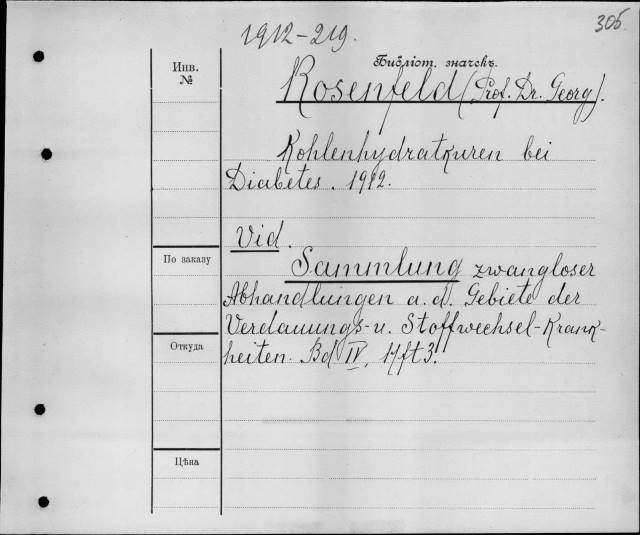 305.
1912-219.
Инв.
№
Библіот. значекъ.
Rosenfeld (Prof. Dr. Georg).
Kohlenhydratkuren bei
Diabetes. 1912.
Vid.
По заказу
Sammlung zwangloser
Abhandlungen a. d. Gebiete der
Verdauungs- u. Stoffwechsel-Krank-
Откуда
heiten. Bd IV, Hft 3.
Цѣна